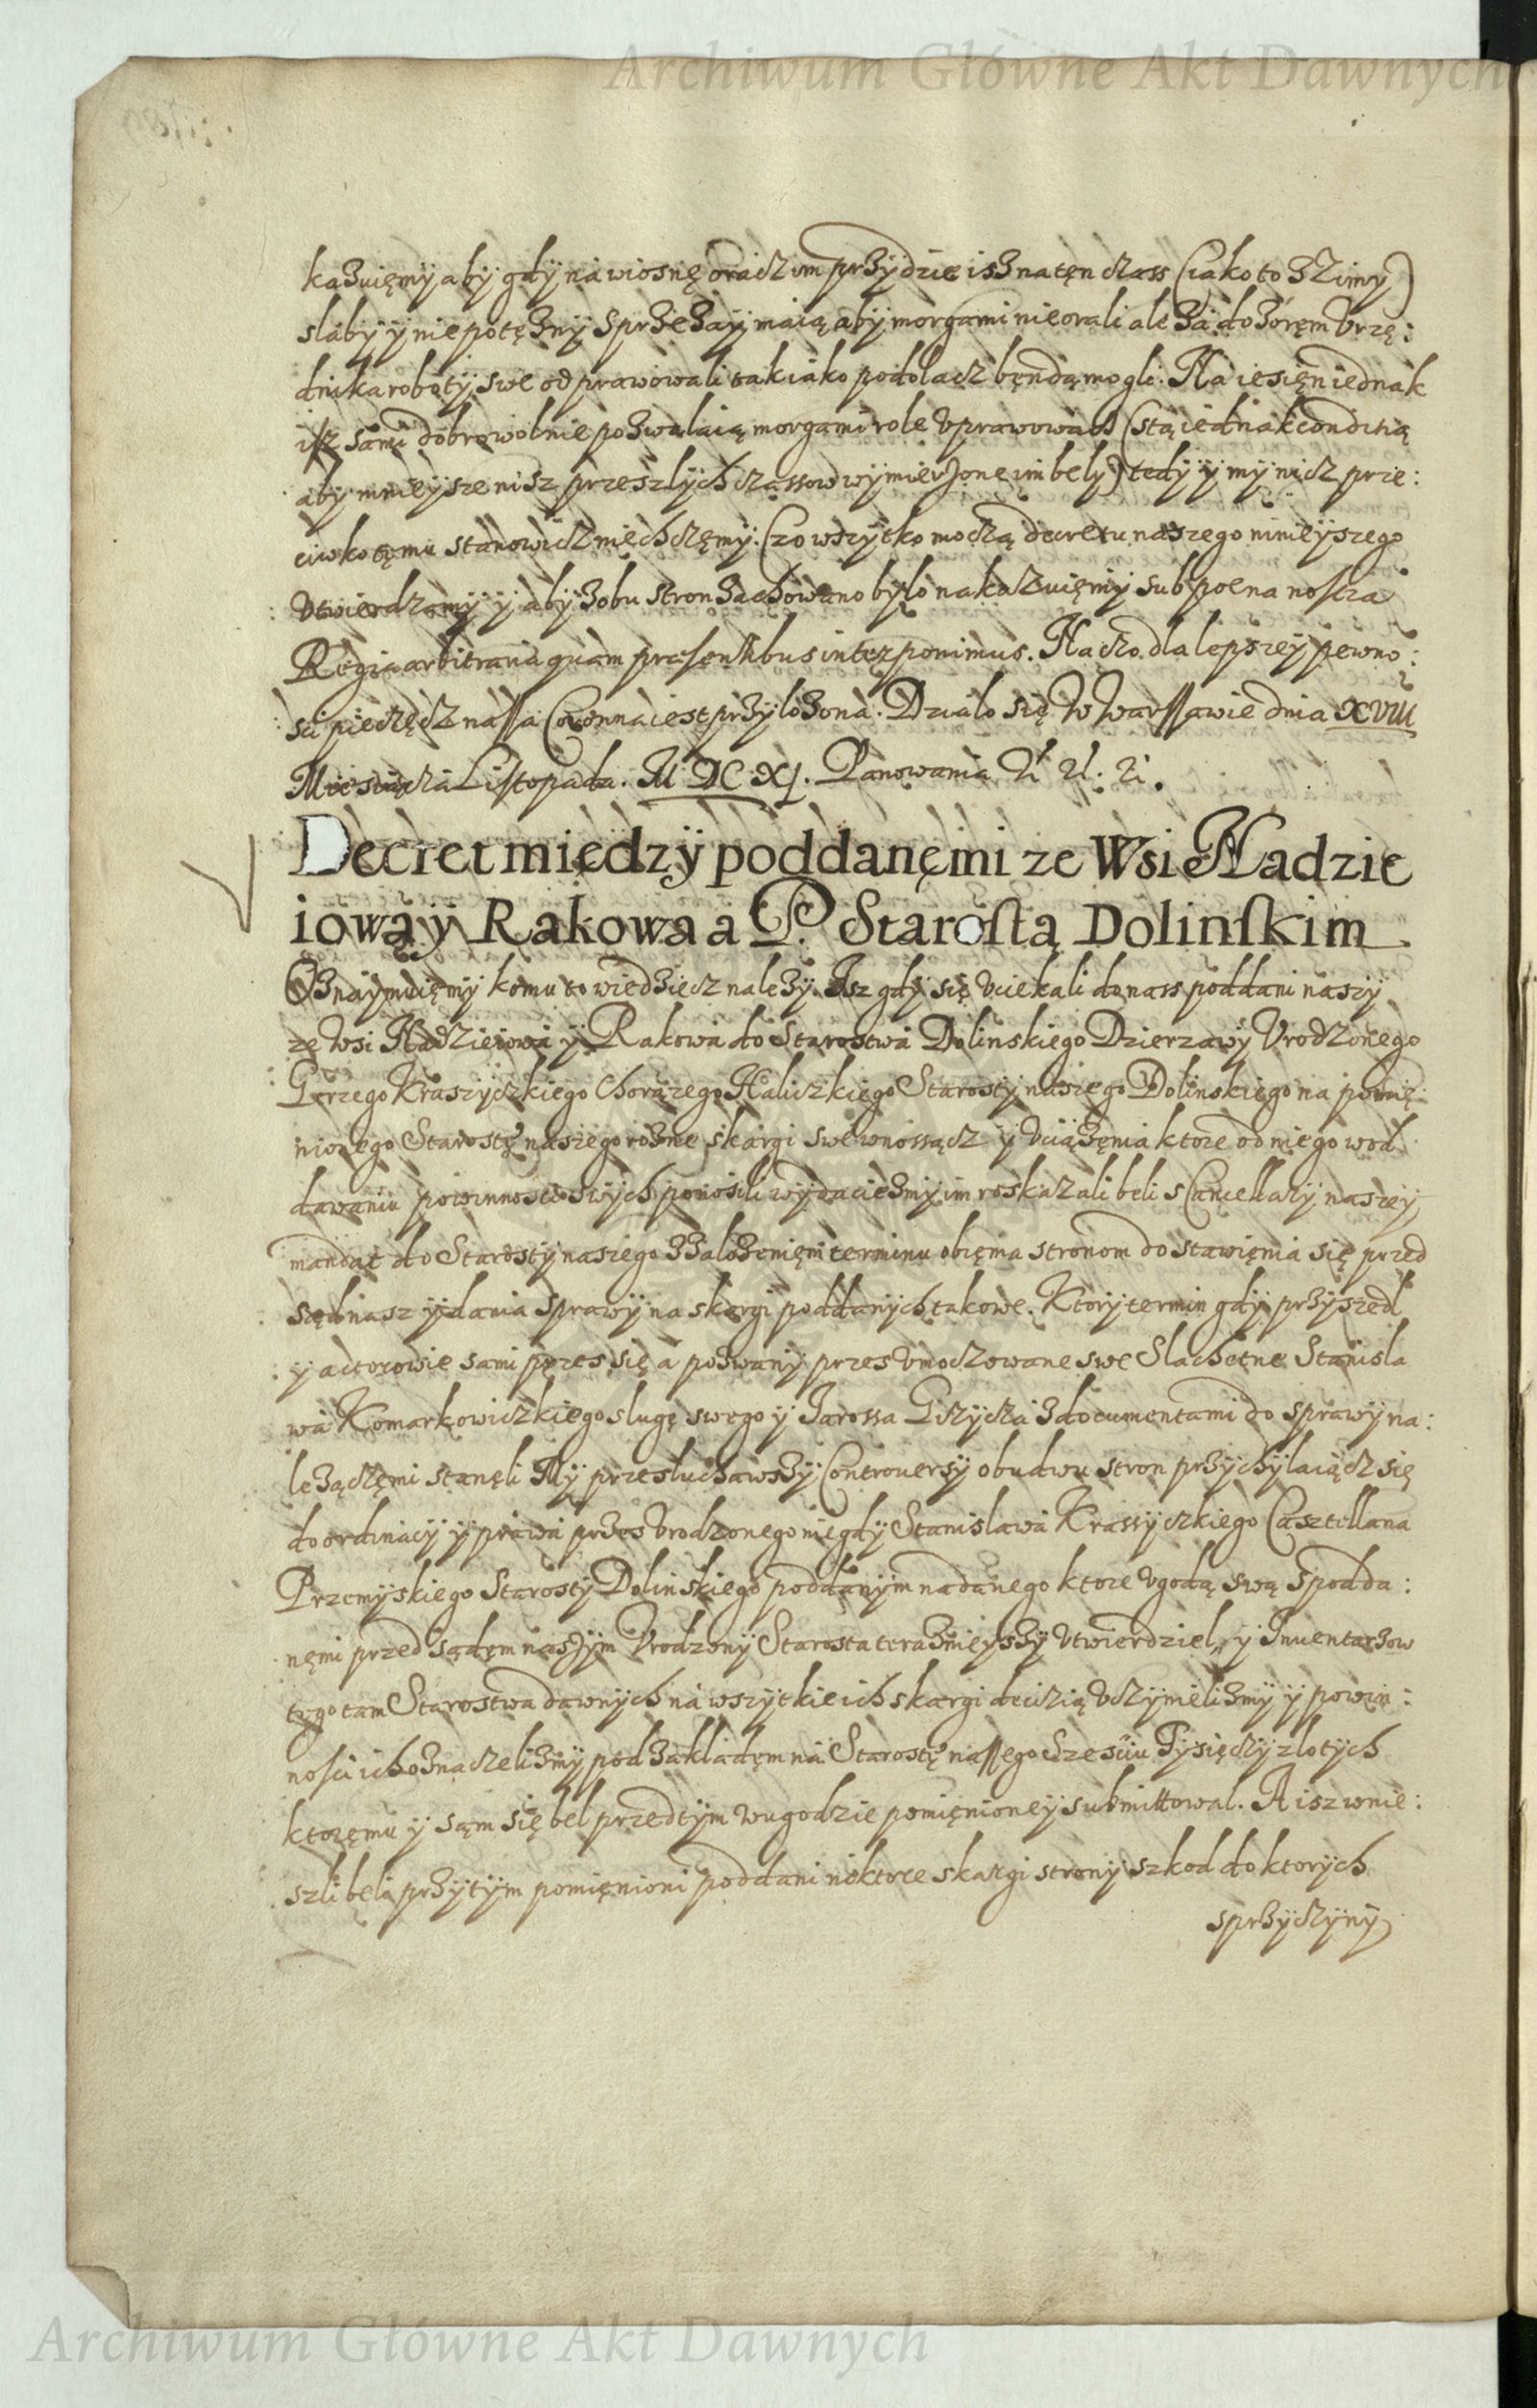 Archiwum Główne Akt Dawnych
kazuięmy aby gdy na wiosnę oracz im przydzie isz na tęn czass (iako to z Zimy)
słaby y niepotężny Sprzężay maią aby morgami nie orali ale za dozoręm Urzę:
dnika roboty swe odprawowali tak iako podołacz będą mogli. Na iesięn iednak
isz sami dobrowolnie pozwalaią morgami role uprawowacz (stą iednak conditią
aby mnieysze nisz przeszłych czassow wymierzone im beły) tedy y my nicz prze:
ciwko tęmu stanowicz niechczęmy. Czo wszytko moczą decretu naszego ninieyszego
Utwierdzamy y aby z obu stron zachowano było nakazuięmy sub poena nostra
Regia arbitraria quam præsentibus interponimus. Na czo dla lepszey pewno:
sci pieczęcz nassa Coronna iest przyłozona. Działo się W Warssawie dnia XVIII
Miesiącza Listopada. M DC XI. Panowania Ut Ut. Ut.
Decret między poddanęmi ze Wsi Nadzie
iowa y Rakowa a P. Starostą Dolinskim
Oznaymuięmy komu to wiedziecz należy. Isz gdy się uciekali do nass poddani naszy
ze Wsi Nadzieiowa y Rakowa do Starostwa Dolinskiego Dzierzawy Urodzonego
Gerzego Kraszyczkiego Chorązego Haliczkiego Starosty naszego Dolinskiego na pomię
nionego Starostę naszego rozne skargi swe wnossącz y uciążęnia ktore od niego w od
dawaniu powinnosci swych ponosili wydaciesmy im roskazali beli s Cancellariy naszey
mandat do Starosty naszego z założenięm terminu obięma stronom do stawięnia się przed
sęd nasz y dania sprawy na skargi poddanych takowe. Ktory termin gdy przyszedł
y actorowie sami przes się a pozwany przes umoczowane swe Slachetne Stanisla
wa Komarkowiczkiego slugę swego y Jarossa Giżycza z documentami do sprawy na:
leżączęmi stanęli My przesłuchawszy Controversy obudwu stron przychylaiącz się
do ordinaciy y prawa przes Urodzonego niegdy Stanisława Krassyczkiego Casztellana
Przemyskiego Starosty Dolinskiego poddanym nadanego ktore ugodą swą s podda:
nęmi przed sądęm naszym Urodzony Starosta teraznieyszy utwierdzieł, y Inuentarzow
tego tam Starostwa dawnych na wszytkie ich skargi decizią uczynielismy y powin:
nosci ich oznaczelismy pod zakładęm na Starostę nassego Szesciu Tysięczy złotych
ktoręmu y sąm się beł przedtym w ugodzie pomięnioney submittował. A isz wnie:
szli beli przytym pomięnioni poddani niektore skargi strony szkod do ktorych
sprzyczyny
Archiwum Główne Akt Dawnych